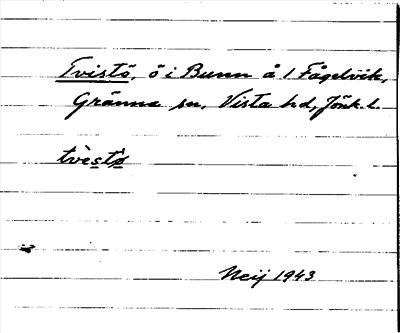 Tvistö, ö i Bunn å 1 Fågelvik,
Gränna sn, Vista hd, Jönk. l.
tvèstö̀
Neij 1943